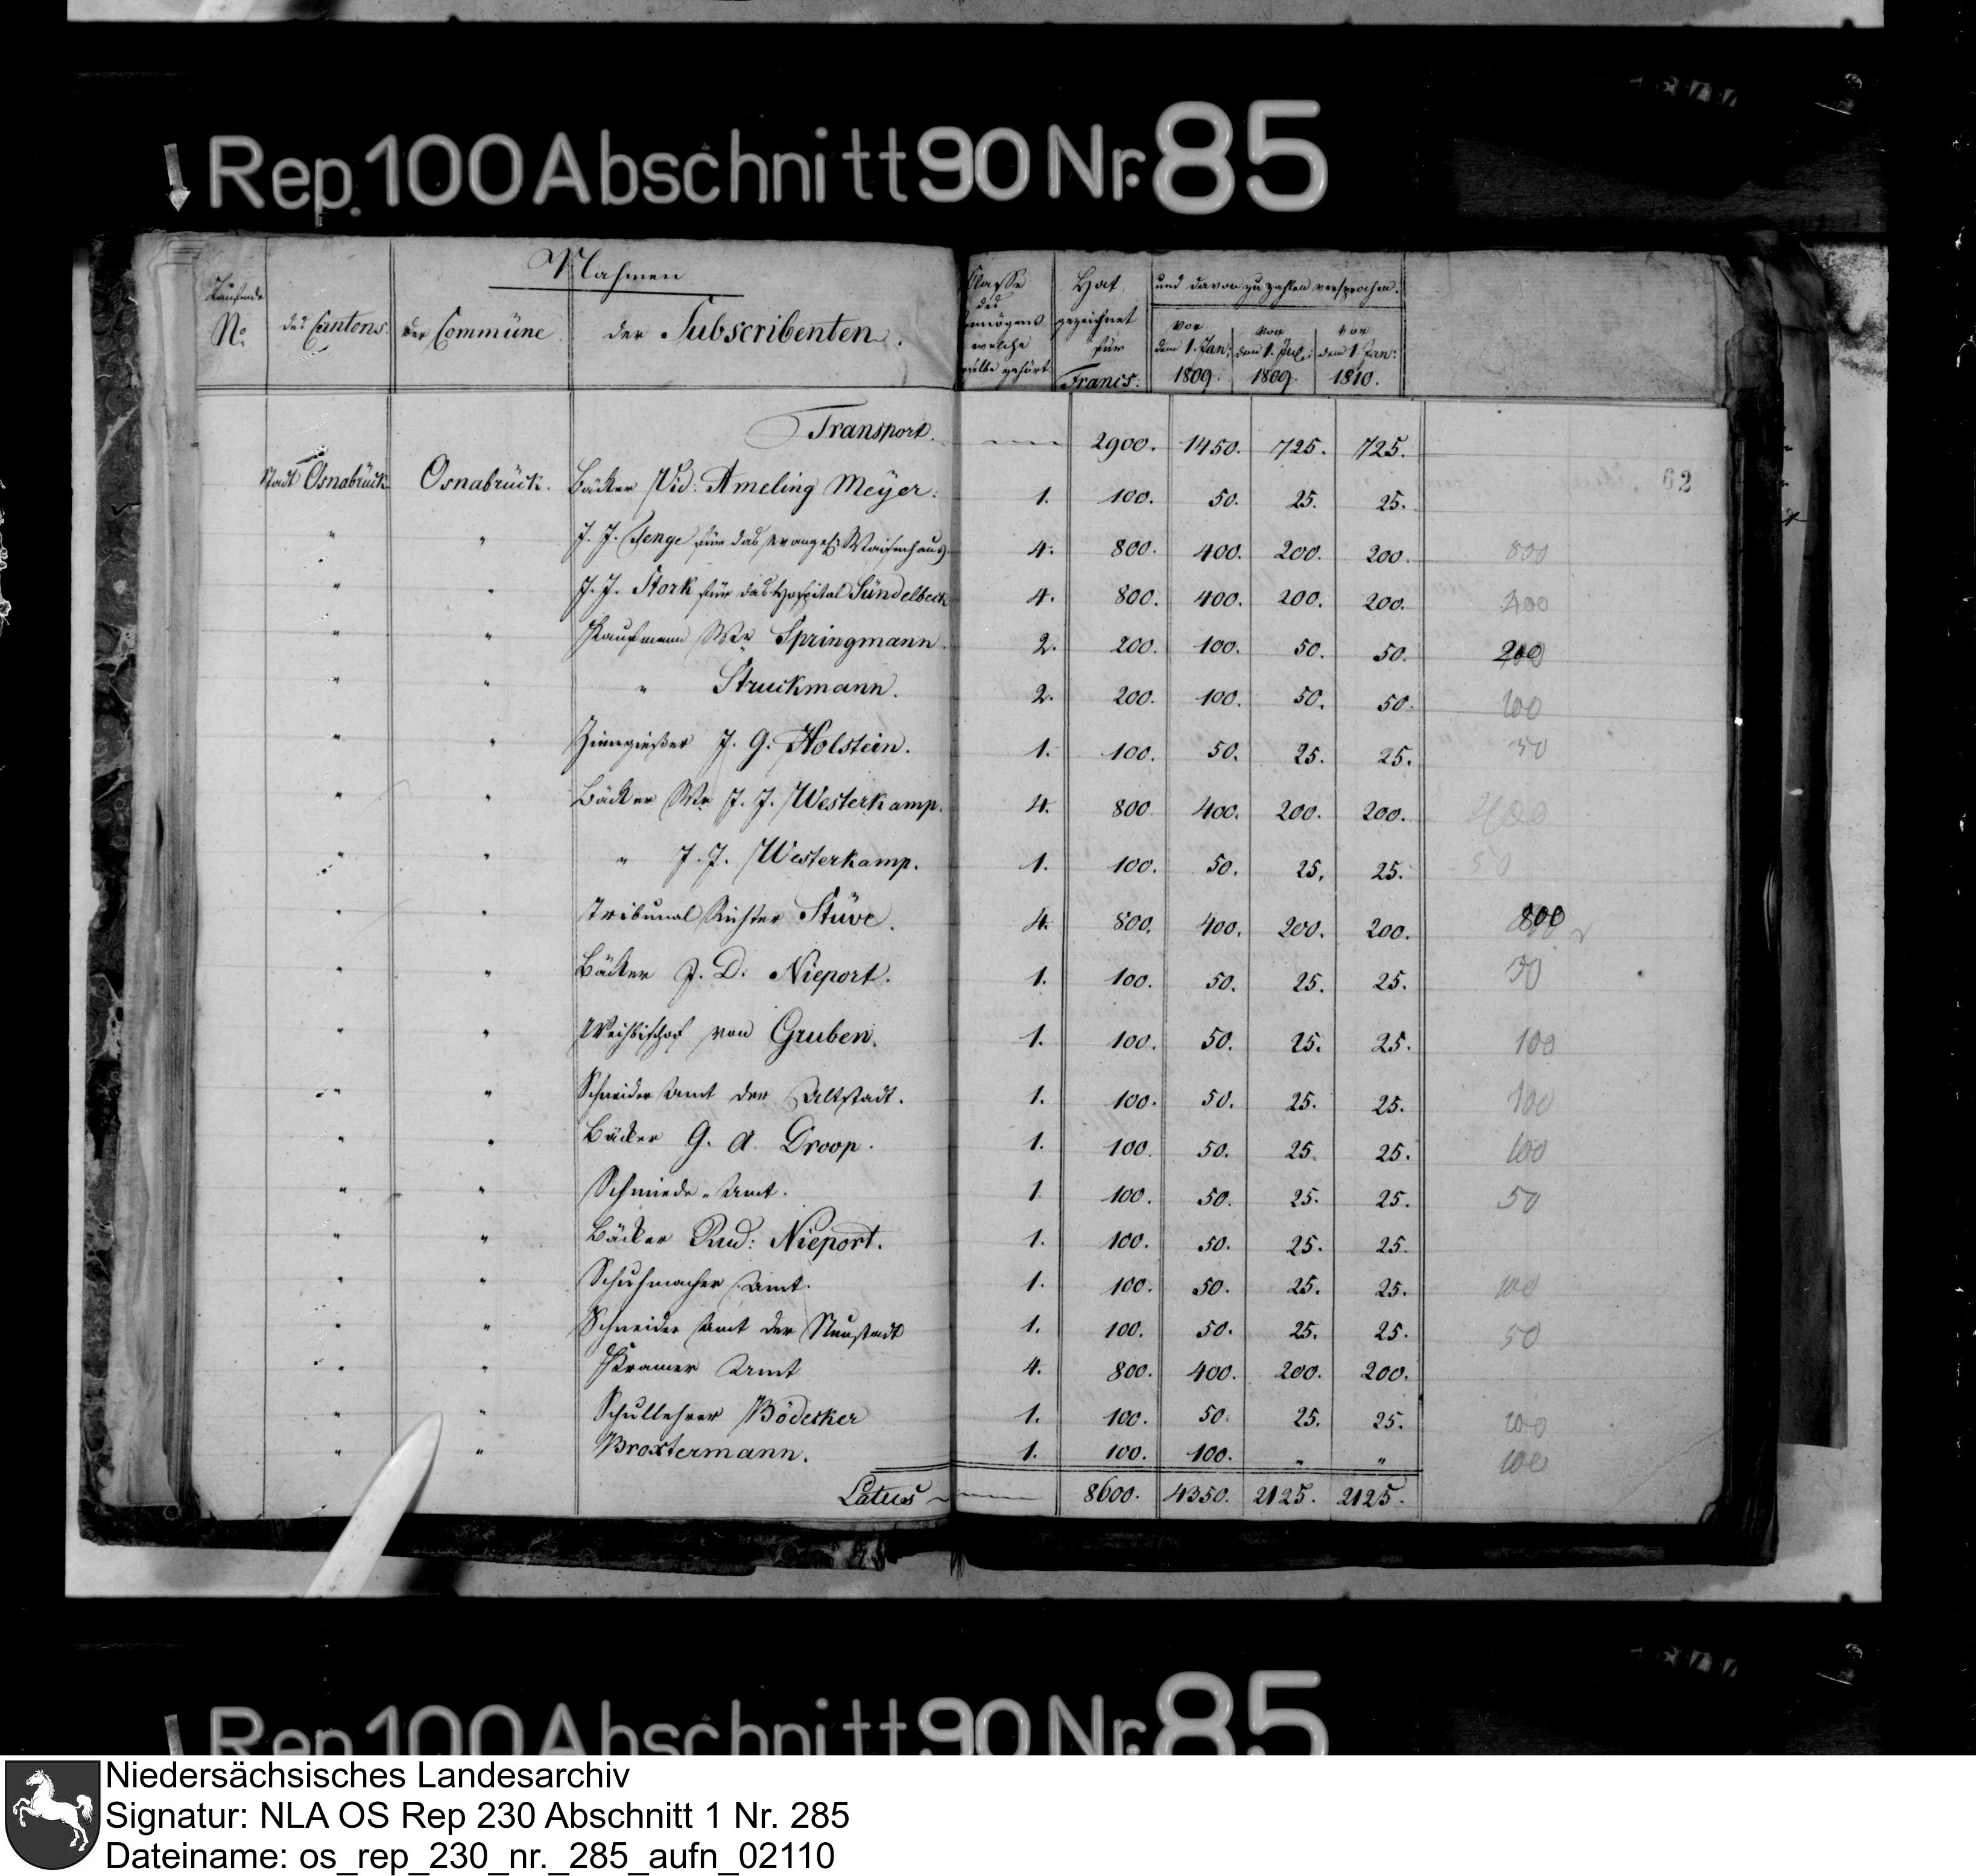 Rep. 100 Abschnitt 90 Nr. 85
Nahmen
Laufende No. des Cantons. der Commüne. der Subscribenten.
Classe des welche gehört.
Hat gezeichnet für Francs.
und davon zu zahlen versprochen.
vor dem 1. Jan: 1809. vor dem 1. Jul: 1809. vor dem 1. Jan: 1810.
Transport. 2900. 1450. 725. 725.
62
Stadt Osnabrück Osnabrück. Bäcker Vid: Ameling Meyer. 1. 100. 50. 25. 25.
" " J. J. Tenge für das evangel: Waisenhaus 4. 800. 400. 200. 200. 800
" " J. J. Stork für das Hospital Sündelbeck 4. 800. 400. 200. 200. 400
" " Kaufmann We Springmann. 2. 200. 100. 50. 50. 200
" " " Struckmann. 2. 200. 100. 50. 50. 200
" " Zinngießer J. G. Holstein. 1. 100. 50. 25. 25. 50
" " Bäcker We J. J. Westerkamp. 4. 800 400. 200. 200. 400
" " " J. J. Westerkamp. 1. 100. 50. 25. 25. 50
" " Tribunal Richter Stüve. 4. 800. 400. 200. 200. 800
" " Bäcker J. D. Nieport. 1. 100. 50. 25. 25. 50
" " Weihbischof von Gruben. 1. 100. 50. 25. 25. 100
" " Schneider Amt der Altstadt. 1. 100. 50. 25. 25. 100
" " Bäcker G. A. Droop. 1. 100. 50. 25. 25. 100
" " Schmiede-Amt. 1 100. 50. 25. 25. 50
" " Bäcker Rud: Nieport. 1. 100. 50. 25. 25.
" " Schuhmacher Amt. 1. 100. 50. 25. 25. 100
" " Schneider Amt der Neustadt 1. 100. 50. 25. 25. 50
" " Kramer Amt 4. 800. 400. 200. 200.
" " Schullehrer Bödecker 1. 100. 50. 25. 25. 100
" " Broxtermann. 1. 100. 100. " " 100
Latus 8600. 4350. 2125. 2125.
Rep. 100 Abschnitt 90 Nr. 85
Niedersächsisches Landesarchiv
Signatur: NLA OS Rep 230 Abschnitt 1 Nr. 285
Dateiname: os_rep_230_nr._285_aufn_02110